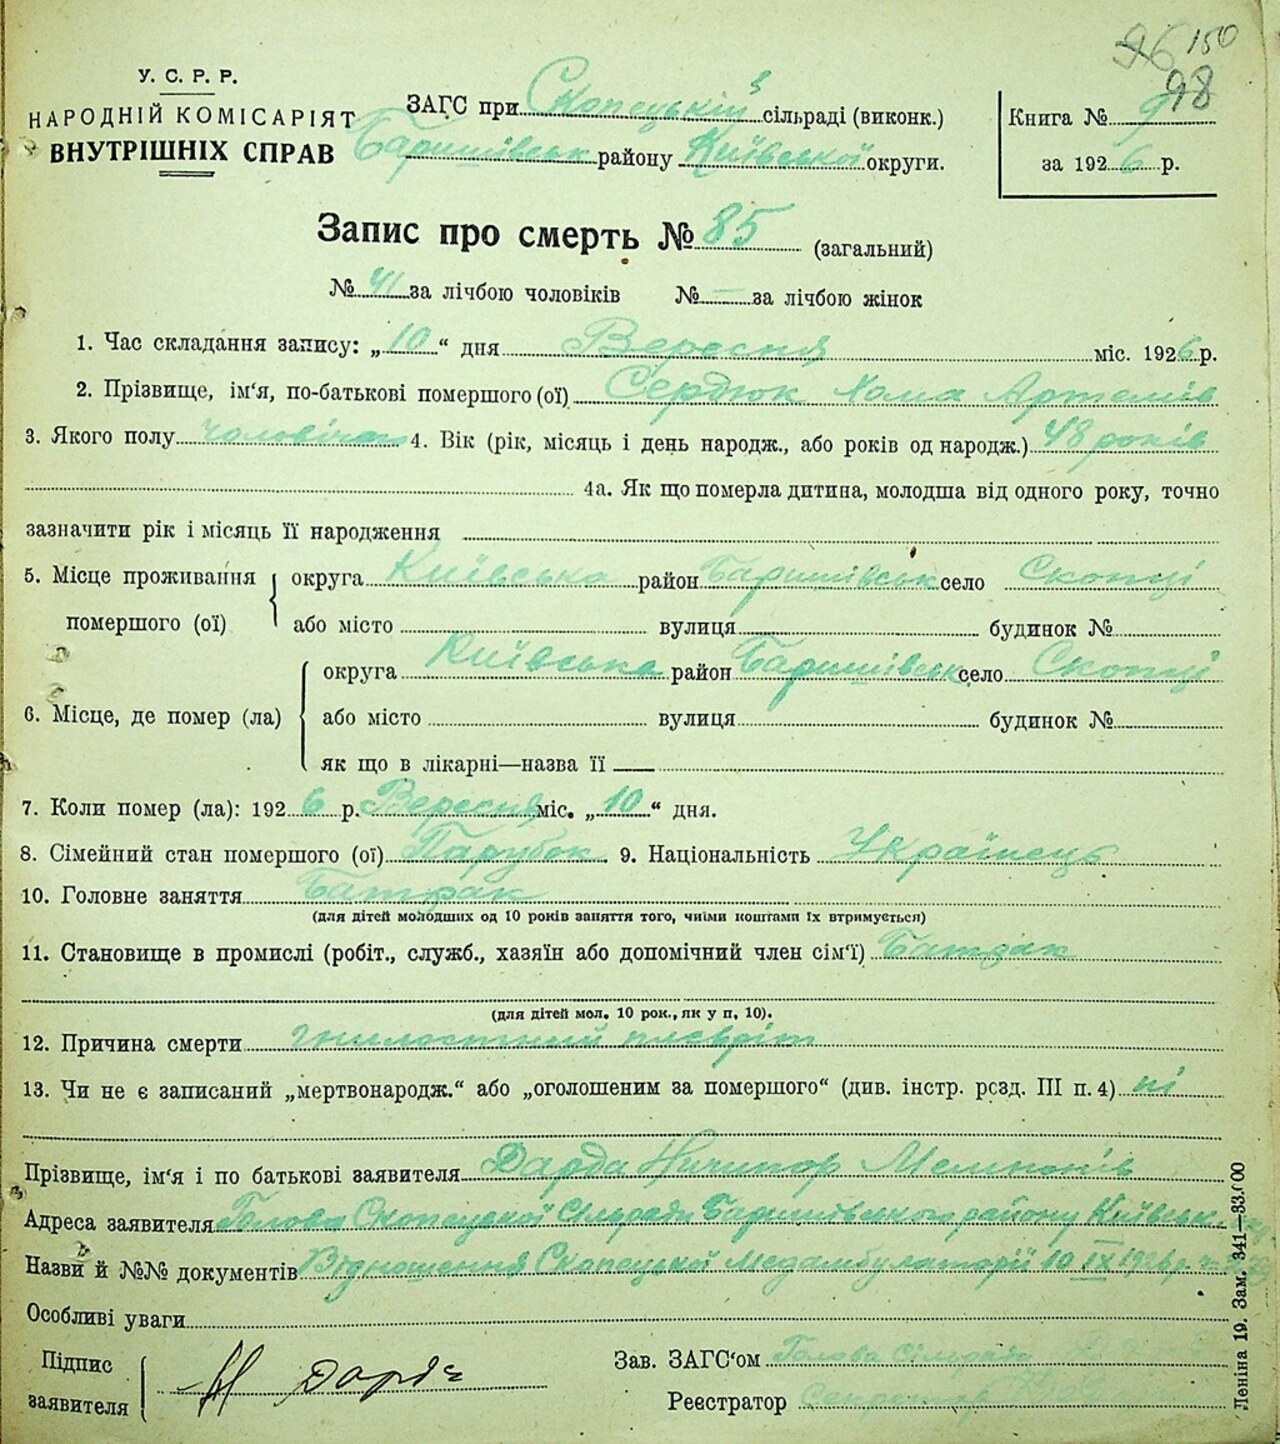 96 150
98
У. С. Р. Р.
НАРОДНІЙ КОМІСАРІЯТ
ВНУТРІШНІХ СПРАВ
ЗАГС при Скопецькій сільраді (виконк.)
Баришівськ району Київської округи.
Книга № 9
за 1926 р.
Запис про смерть № 85 (загальний)
№ 41 за лічбою чоловіків № — за лічбою жінок
1. Час складання запису: „10“ дня Вересня міс. 1926 р.
2. Прізвище, ім‘я, по-батькові помершого (ої) Сердюк Хома Артемів
3. Якого полу чоловічого 4. Вік (рік, місяць і день народж., або років од народж.) 48 років
4а. Як що померла дитина, молодша від одного року, точно
зазначити рік і місяць її народження
5. Місце проживання помершого (ої) округа Київська район Баришівськ село Скопці
або місто вулиця будинок №
6. Місце, де помер (ла) округа Київська район Баришівськ село Скопці
або місто вулиця будинок №
як що в лікарні—назва її
7. Коли помер (ла): 1926 р. Вересня міс. „10“ дня.
8. Сімейний стан помершого (ої) Парубок 9. Національність Українець
10. Головне заняття Батрак
(для дітей молодших од 10 років заняття того, чиїми коштами їх втримується)
11. Становище в промислі (робіт., служб., хазяїн або допомічний член сім‘ї) Батрак
(для дітей мол. 10 рок., як у п. 10).
12. Причина смерти гнилостний плевріт
13. Чи не є записаний „мертвонародж.“ або „оголошеним за помершого“ (див. інстр. розд. III п. 4) ні
Прізвище, ім‘я і по батькові заявителя Дарда Ничипор Мемнонів
Адреса заявителя Голова Скопецької Сільради Баришівського району Київськ.
Назви й №№ документів Відношення Скопецької Медамбулаторії 10 IX 1926 р.
Особливі уваги
Підпис заявителя Н Дарда
Зав. ЗАГС‘ом Голова Сільради
Реєстратор Секретар
Леніна 19. Зам. 341—33.000